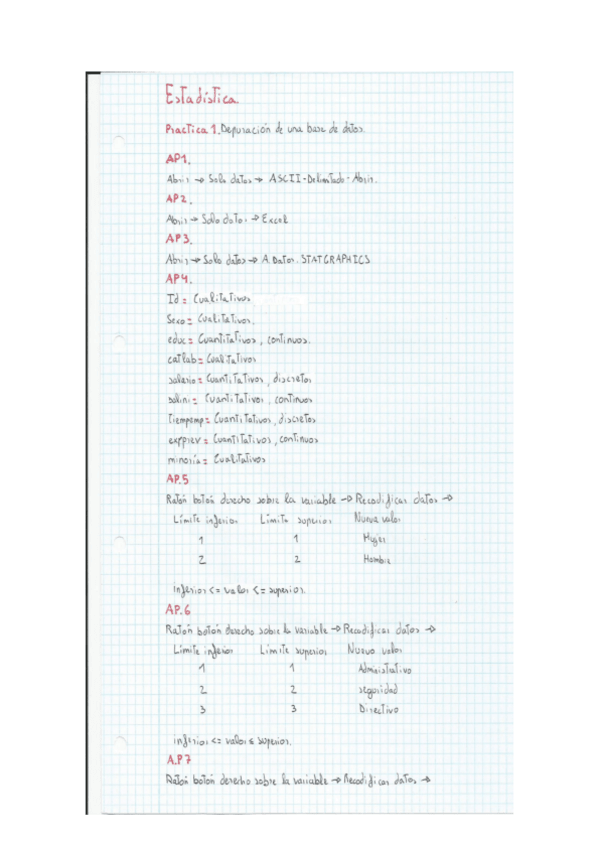 Estadística.
Practica 1. Depuración de una base de datos.
AP1.
Abrir → Solo datos → ASCII-Delimitado-Abrir.
AP2.
Abrir → Solo datos → Excel
AP3.
Abrir → Solo datos → A. Datos. STATGRAPHICS
AP4.
Id = Cualitativos
Sexo = Cualitativos.
educ = Cuantitativos, continuos.
catlab = Cualitativos
salario = Cuantitativos, discretos
salini = Cuantitativos, continuos
tiempemp = Cuantitativos, discretos
expprev = Cuantitativos, continuos
minoría = Cualitativos
AP.5
Ratón botón derecho sobre la variable → Recodificar datos →
Límite inferior Límite superior Nuevo valor
1 1 Mujer
2 2 Hombre
inferior <= valor <= superior.
AP.6
Ratón botón derecho sobre la variable → Recodificar datos →
Límite inferior Límite superior Nuevo valor
1 1 Administrativo
2 2 seguridad
3 3 Directivo
inferior <= valor ≤ superior.
A.P7
Ratón botón derecho sobre la variable → Recodificar datos →